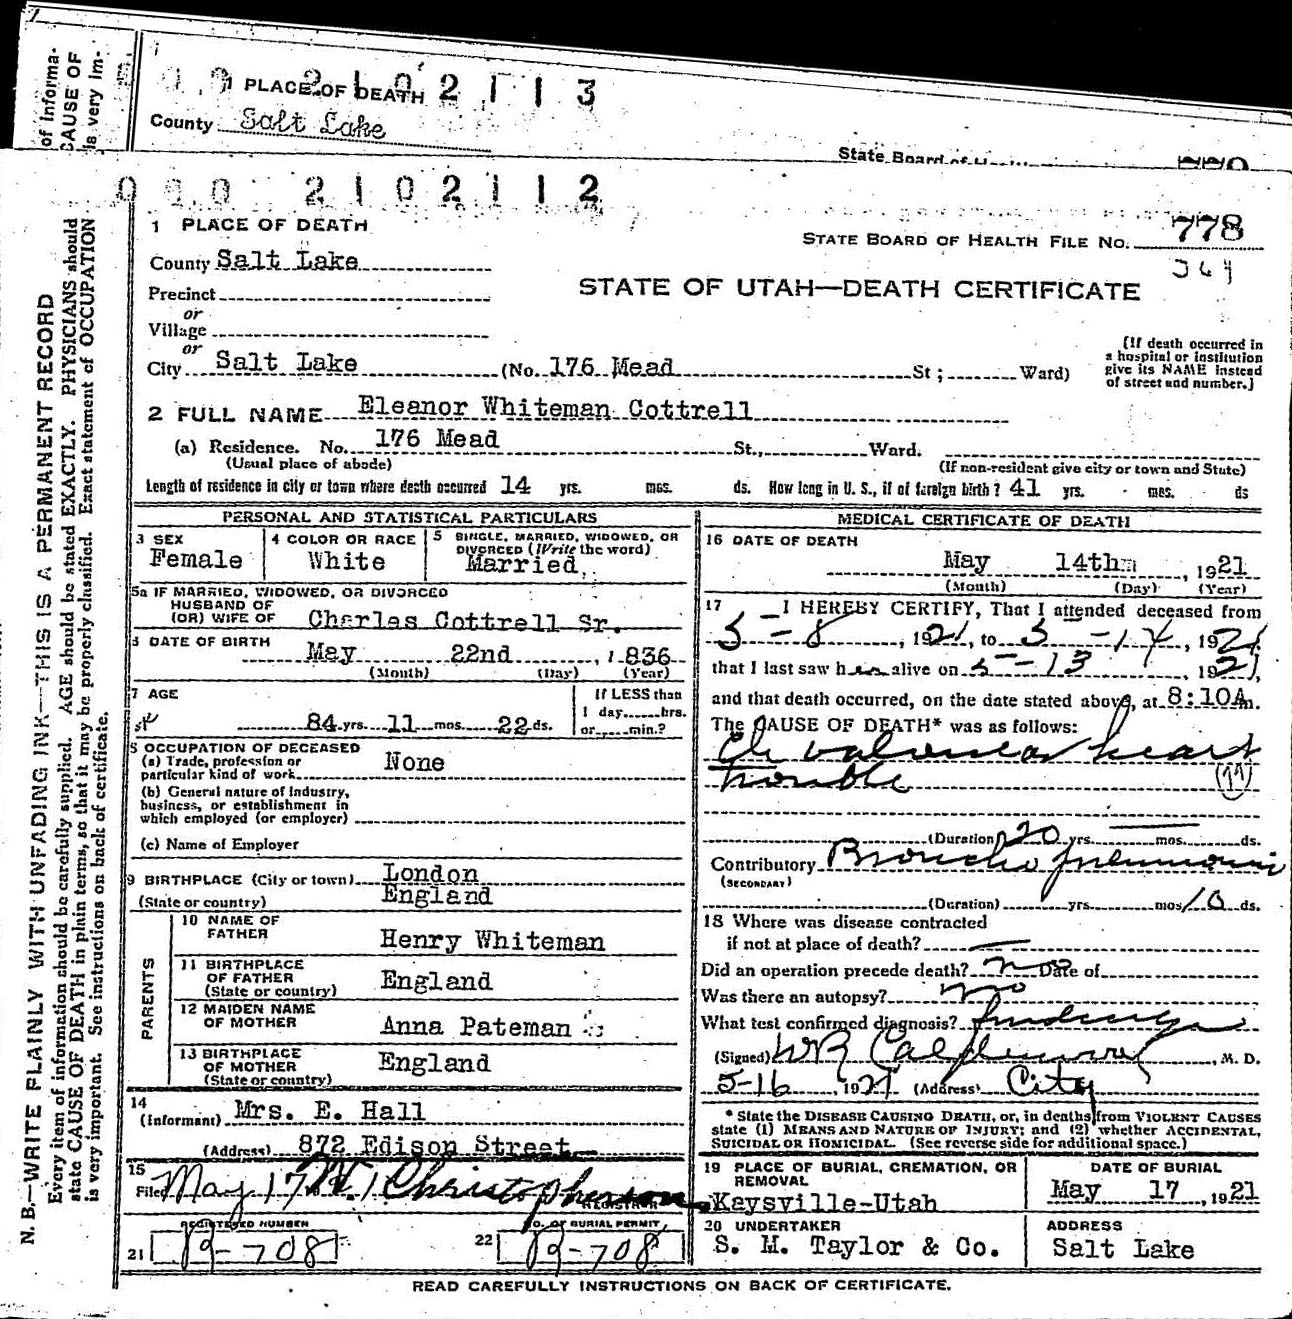 of informa-
CAUSE OF
is very im-
1 PLACE OF DEATH
2 1 0 2 1 1 3
County Salt Lake
State Board of
2 1 0 2 1 1 2
1 PLACE OF DEATH
STATE BOARD OF HEALTH FILE No. 778
County Salt Lake
Precinct
STATE OF UTAH—DEATH CERTIFICATE
or
Village
or
City Salt Lake (No. 176 Mead St; Ward)
(If death occurred in
a hospital or institution
give its NAME instead
of street and number.)
2 FULL NAME Eleanor Whiteman Cottrell
(a) Residence. No. 176 Mead St., Ward.
(Usual place of abode) (If non-resident give city or town and State)
Length of residence in city or town where death occurred 14 yrs. mos. ds. How long in U. S., if of foreign birth? 41 yrs. mos. ds
PERSONAL AND STATISTICAL PARTICULARS
3 SEX
Female
4 COLOR OR RACE
White
5 SINGLE, MARRIED, WIDOWED, OR
DIVORCED (Write the word)
Married
5a IF MARRIED, WIDOWED, OR DIVORCED
HUSBAND OF
(OR) WIFE OF Charles Cottrell Sr.
DATE OF BIRTH
May 22nd , 1836
(Month) (Day) (Year)
7 AGE
84 yrs. 11 mos. 22 ds.
If LESS than
1 day......hrs.
or......min.?
OCCUPATION OF DECEASED
(a) Trade, profession or
particular kind of work
None
(b) General nature of Industry,
business, or establishment in
which employed (or employer)
(c) Name of Employer
9 BIRTHPLACE (City or town) London
(State or country) England
PARENTS
10 NAME OF
FATHER
Henry Whiteman
11 BIRTHPLACE
OF FATHER
(State or country)
England
12 MAIDEN NAME
OF MOTHER
Anna Pateman
13 BIRTHPLACE
OF MOTHER
(State or country)
England
14
(Informant) Mrs. E. Hall
(Address) 872 Edison Street
15
Filed May 17 Christopherson
REGISTRAR
REGISTERED NUMBER
21 R-708
NO. OF BURIAL PERMIT
22 R-708
MEDICAL CERTIFICATE OF DEATH
16 DATE OF DEATH
May 14th , 1921
(Month) (Day) (Year)
17 I HEREBY CERTIFY, That I attended deceased from
5-8 , 1921, to 5-14, 1921
that I last saw her alive on 5-13 1921,
and that death occurred, on the date stated above, at 8:10A m.
The CAUSE OF DEATH* was as follows:
Ch valvular heart
trouble
(Duration) 20 yrs. — mos. ds.
Contributory Broncho pneumonia
(SECONDARY)
(Duration) yrs. mos. 10 ds.
18 Where was disease contracted
if not at place of death? —
Did an operation precede death? no Date of
Was there an autopsy? no
What test confirmed diagnosis? findings
(Signed) WR Calderwood, M. D.
5-16 , 1921 (Address) City
* State the DISEASE CAUSING DEATH, or, in deaths from VIOLENT CAUSES
state (1) MEANS AND NATURE OF INJURY; and (2) whether ACCIDENTAL,
SUICIDAL OR HOMICIDAL. (See reverse side for additional space.)
19 PLACE OF BURIAL, CREMATION, OR
REMOVAL
Kaysville-Utah
DATE OF BURIAL
May 17 , 1921
20 UNDERTAKER
S. M. Taylor & Co.
ADDRESS
Salt Lake
READ CAREFULLY INSTRUCTIONS ON BACK OF CERTIFICATE.
N. B.—WRITE PLAINLY WITH UNFADING INK—THIS IS A PERMANENT RECORD
Every item of information should be carefully supplied. AGE should be stated EXACTLY. PHYSICIANS should
state CAUSE OF DEATH in plain terms, so that it may be properly classified. Exact statement of OCCUPATION
is very important. See instructions on back of certificate.